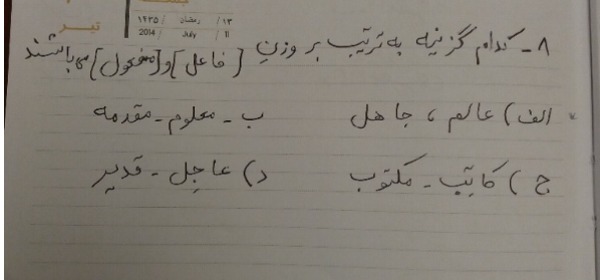 ۱۳ / رمضان / ۱۴۳۵
11 / July / 2014
تیر
۸ - کدام گزینه به ترتیب بر وزنِ [فاعل] و [مفعول] می باشند
الف) عالم ، جاهل    ب - معلوم - مقدمه
ج) کاتِب - مکتوب    د) عاجِل - قدیر